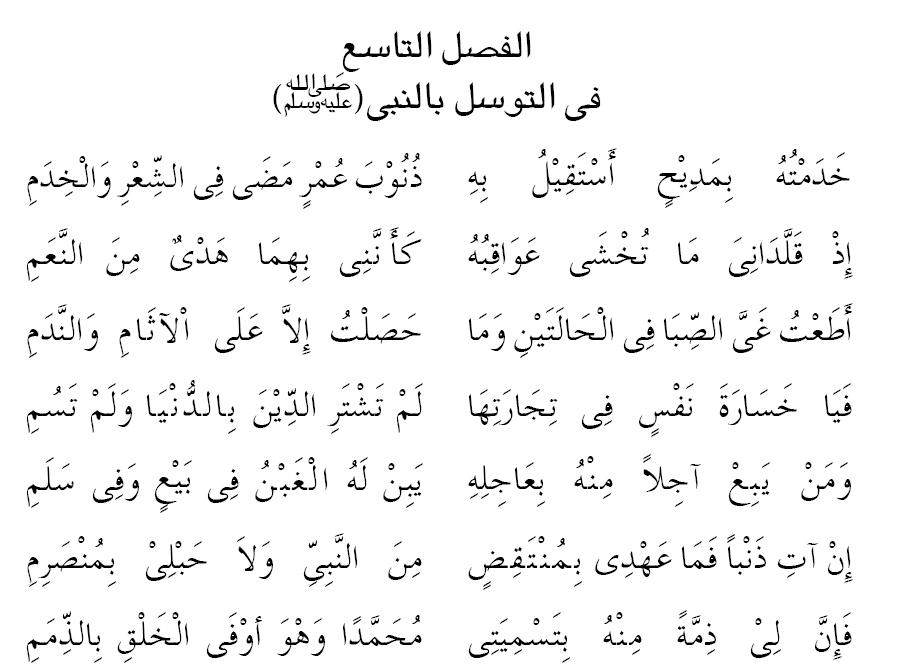 الفصل التاسع
فى التوسل بالنبى (ﷺ)
خَدَمْتُهُ بِمَدِيْحٍ أَسْتَقِيْلُ بِهِ ذُنُوْبَ عُمْرٍ مَضَى فِى الشِّعْرِ وَالْخِدَمِ
إِذْ قَلَّدَانِىَ مَا تُخْشَى عَوَاقِبُهُ كَأَنَّنِى بِهِمَا هَدْىٌ مِنَ النَّعَمِ
أَطَعْتُ غَىَّ الصِّبَا فِى الْحَالَتَيْنِ وَمَا حَصَلْتُ إِلاَّ عَلَى اْلآثَامِ وَالنَّدَمِ
فَيَا خَسَارَةَ نَفْسٍ فِى تِجَارَتِهَا لَمْ تَشْتَرِ الدِّيْنَ بِالدُّنْيَا وَلَمْ تَسُمِ
وَمَنْ يَبِعْ آجِلاً مِنْهُ بِعَاجِلِهِ يَبِنْ لَهُ الْغَبْنُ فِى بَيْعٍ وَفِى سَلَمِ
إِنْ آتِ ذَنْباً فَمَا عَهْدِى بِمُنْتَقِضٍ مِنَ النَّبِىِّ وَلاَ حَبْلِىْ بِمُنْصَرِمِ
فَإِنَّ لِىْ ذِمَّةً مِنْهُ بِتَسْمِيَتِى مُحَمَّدًا وَهْوَ أوْفَى الْخَلْقِ بِالذِّمَمِ